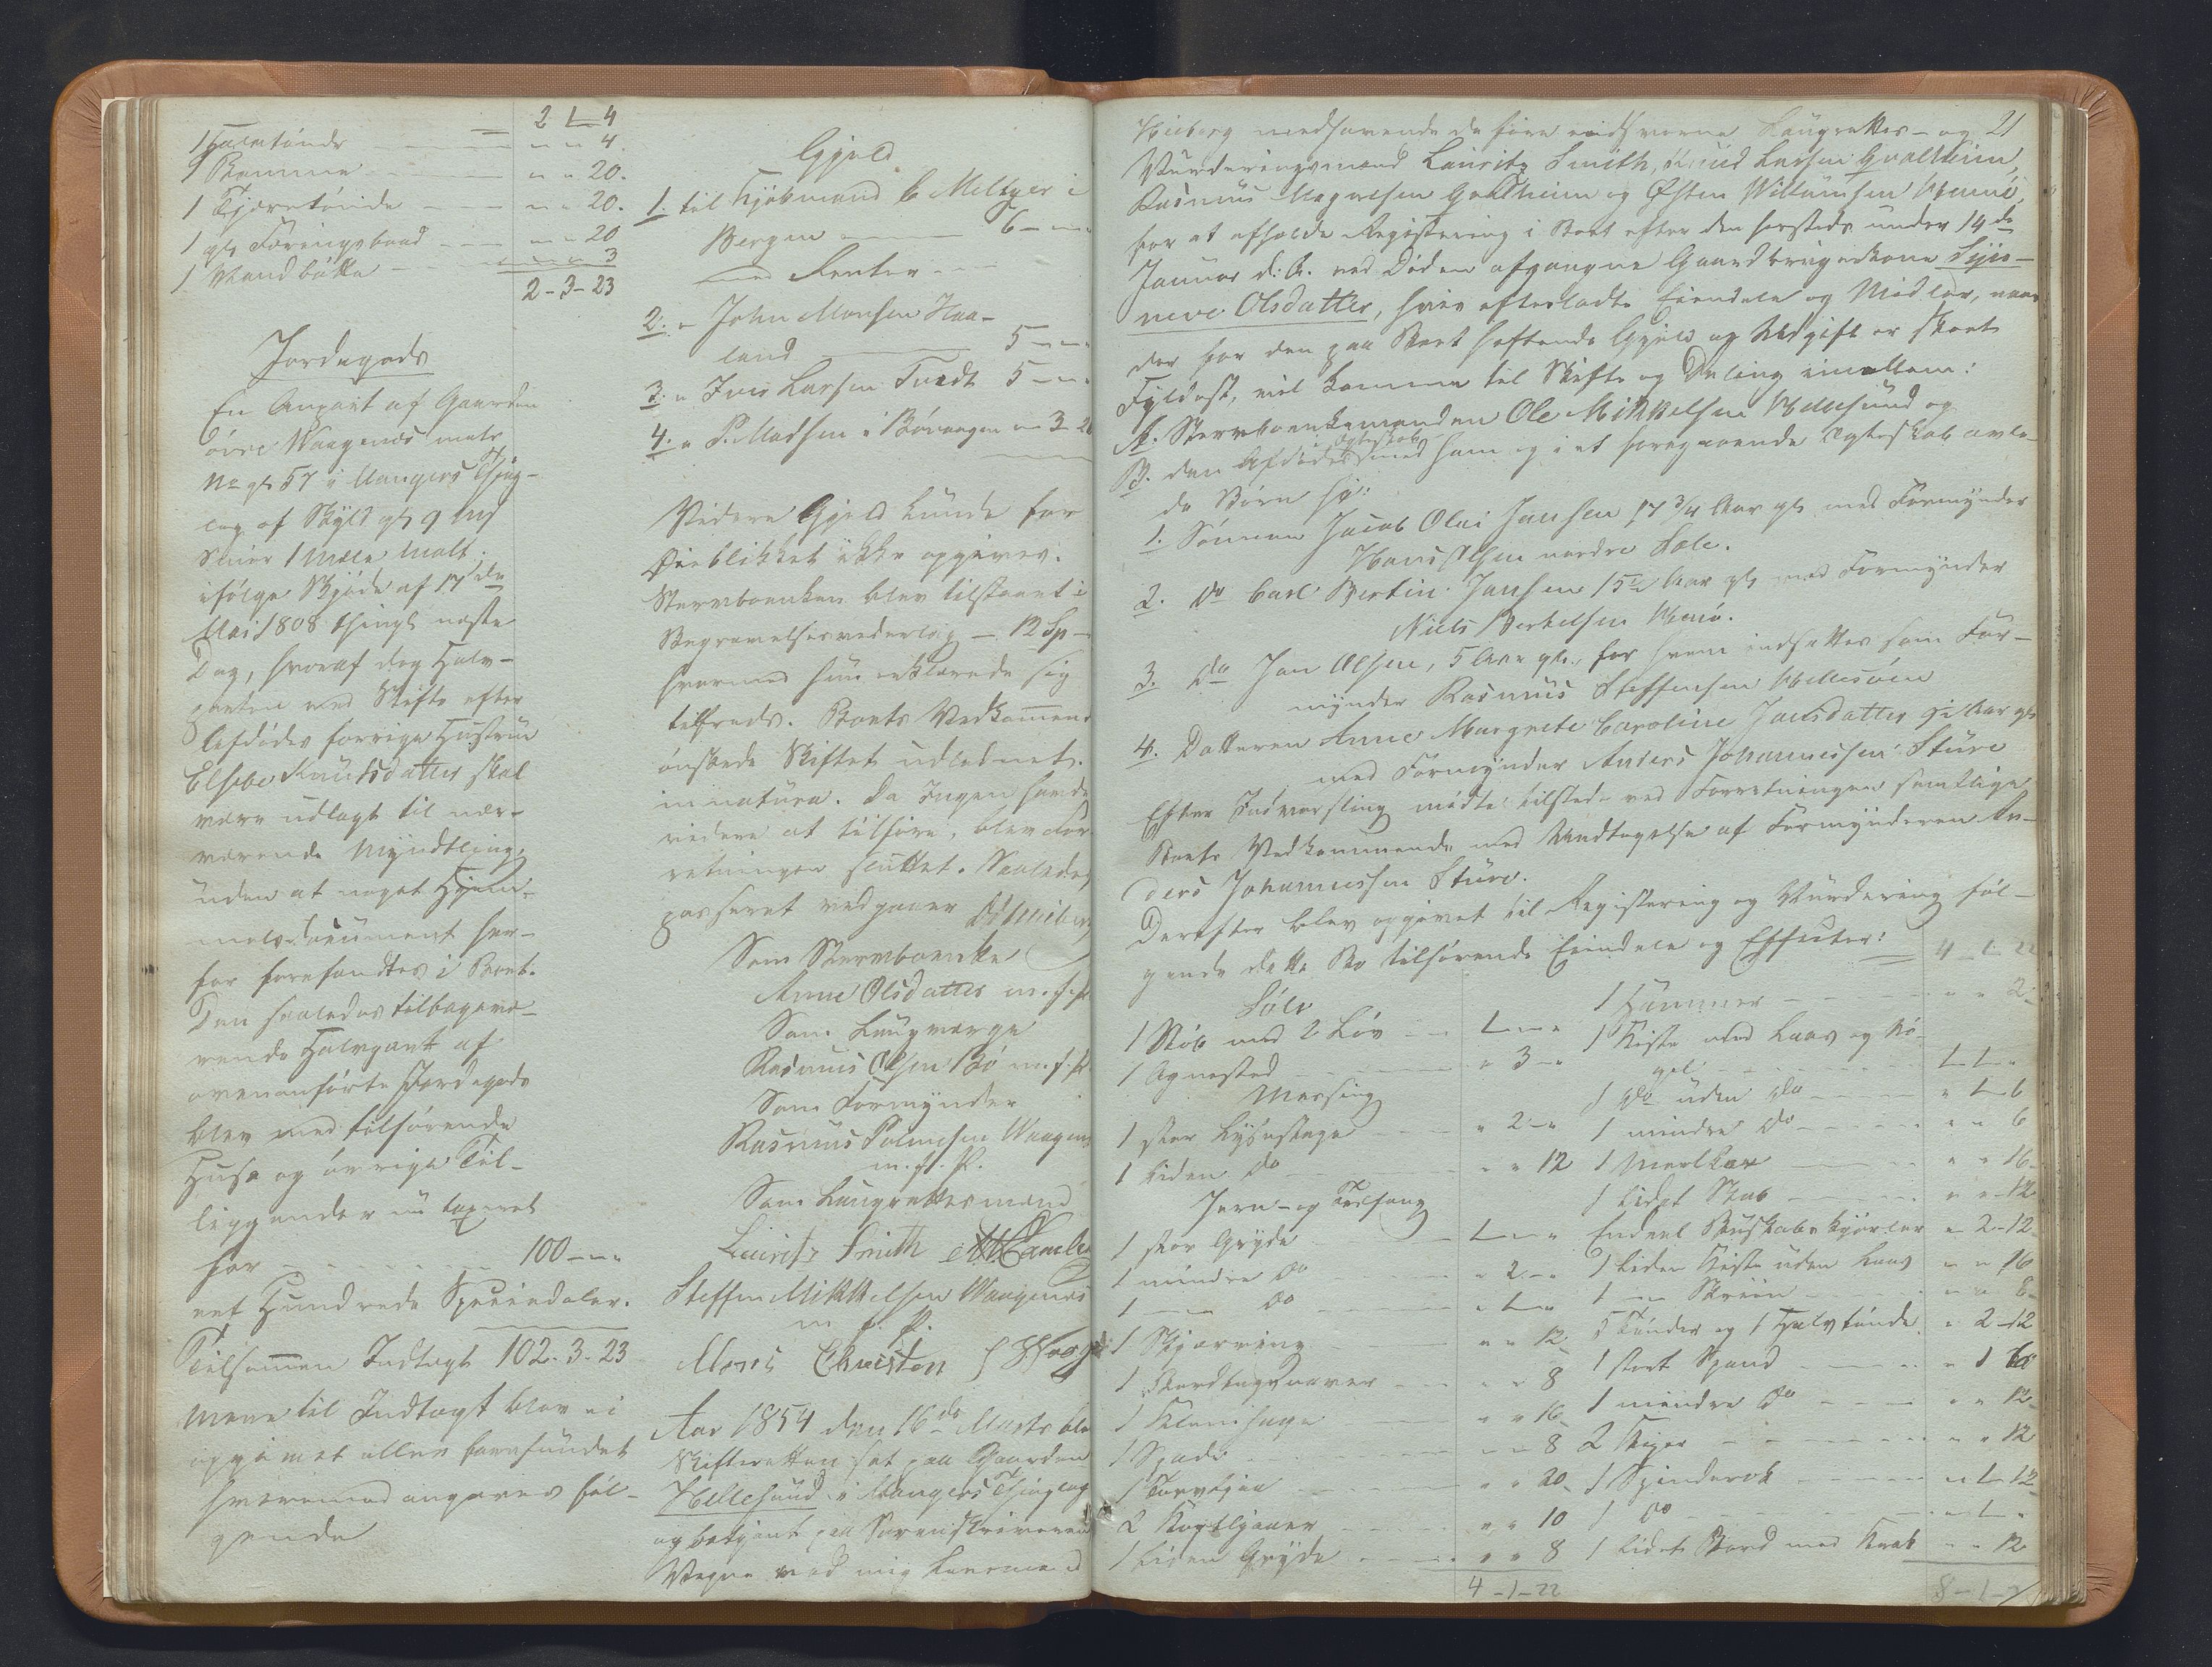 2 1 4
1 Halvtønde — „ „ 4.
9 Bomme — „ „ 20.
1 Tjæretønde — „ „ 20.
1 gl. Færingsbaad — „ „ 20
1 Vandbøtte — „ „ 3
2-3-23
Jordegods
En Anpart af Gaarden
øvre Waagenes matr.
No gl. 57 i Mangers Thing-
lag af Skyld gl.
1 Mæle Malt.
ifølge Skjøde af 17de
Mai 1808 thingl. næste
Dag, hvoraf dog Halv-
parten ved Skifte efter
Afdødes forrige Hustrue
Elsebe Knudsdatter skal
være udlagt til nær-
værende Myndtling,
uden at noget Hjem-
melsdocument her-
for forefandtes i Boet.
Den saaledes tilbagevæ-
rende Halvpart af
ovenanførte Jordegods
blev med tilhørende
Huse og øvrige Til-
liggender nu taxeret
for — 100 „ „
eet Hundrede Speciedaler.
Tilsammen Indtægt 102. 3. 23
Mere til Indtægt blev ei
opgivet eller forefundet
hvorimod angaves føl-
gende
Gjeld
1. til Kjøbmand C Meltzer i
Bergen — 6 „ „
med Renter
2. „ John Monsen Haa-
land — 5 „ „
3. „ Iver Larsen Tvedt 5 „ „
4. „ P. Madsen i Bøvaagen „ 3
Videre Gjeld kunde for
Øieblikket ikke opgives.
Stervboenken blev tilstaaet i
Begravelsesvederlag — 12 Sp
hvormed hun erklærede sig
tilfreds. Boets Vedkommende
ønskede Skiftet udlodnet
in natura. Da Ingen havde
videre at tilføre, blev For-
retningen sluttet. Saaledes
passeret vedgaaer
Som Stervboenke
Anne Olsdatter m. f. P.
Som Laugværge
Rasmus Olsen Bø m. f. P.
Som Formynder
Rasmus Salmesen Waagenes
m. f. P.
Som Laugrettesmænd
Lauritz Smith
Steffen Mikkelsen Waagenes
m. f. P.
Mons Christen
Aar 1854 den 16de Marts blev
Skifteretten sat paa Gaarden
Hellesund i Mangers Thinglag
og betjent paa Sorenskriverens
Vegne ved mig Lensmand
21
Wieberg medhavende de føre eedsvorne Laugrettes- og
Vurderingsmænd Lauritz Smith, Knud Larsen Goltheim,
Rasmus Magnesen Goltheim og Østen Villumsen Uttnø,
for at afholde Registrering i Boet efter den hersteds under 14de
Januar d. A. ved Døden afgangne Gaardbrugerkone Syn-
neve Olsdatter, hvis efterladte Eiendele og Midler, naar
der for den paa Boet heftende Gjeld og Udgift er skeet
Fyldest, vil komme til Skifte og Deling imellem:
A. Stervboenkemanden Ole Mikkelsen Hellesund og
i Ægteskab
B. den Afdødes med ham og i et foregaaende Ægteskab avle-
de Børn so:
1. Sønnen Jacob Olai Jansen 17 3/4 Aar gl. med Formynder
Hans Olsen nordre Sæle.
2. do Carl Bertin Jansen 15 1/2 Aar gl. med Formynder
Niels Bertelsen
3. do Jan Olsen, 5 Aar gl., for hvem indsættes som For-
mynder Rasmus Steffensen Hellesøen
4. Datteren Anne Margrete Caroline Jansdatter 9 1/2 Aar gl.
med Formynder Anders Johannessen Sture
Efter Indvarsling mødte tilstede ved Forretningen samtlige
Boets Vedkommende med Undtagelse af Formynderen An-
ders Johannessen Sture.
Derefter blev opgivet til Registrering og Vurdering føl-
gende dette Bo tilhørende Eiendele og Effecter:
Sølv
1 Støb med 2 Løv — 1 „ „
1 Agnested — „ 3 „
Messing
1 stor Lysestage — „ 2 „
1 liden do — „ „ 12
Jern- og Træfang
1 stor Gryde — 1 „ „
1 mindre do — „ 2 „
1 — do — „ 1 „
1 Skjæring — „ „ 12
1 Bordtagsnaver — „ „ 8
1 Klemsage — „ „ 16
1 Spade — „ „ 8
1 Torvljaa — „ „ 20
2 Kortljaaer — „ „ 10
1 liden Gryde — „ „ 8
4-1-22
4-1-22
1 Hammer — „ „ 2
1 Kiste med Laas og Nø-
gel — 1 1 „
1 do uden do — „ 1 6
1 mindre do — „ „ 6
1 Meelkar — „ „ 16
1 lidet Skab — „ „ 12
Endeel Buskabskjørler — „ 2-12
1 liden Kiste uden Laas — „ „ 16
1 — Skriin — „ „ 8
5 Tønder og 1 Halvtønde — „ 2-12
1 stort Spand — „ 1
1 mindre do — „ „ 12
2 Stiger — „ „ 12
1 Spinderok — „ 1-12
1 do — „ 1 „
1 lidet Bord med Skab — „ „ 12